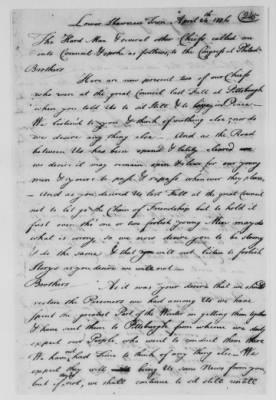 Lower Shawnese Town April 24th 1776
The Hard Man & several other Chiefs called an
into Council & spoke as follows, to the Congress at Philad.
Brothers
Here are now present two of our Chiefs
who were at the great Council last Fall at Pittsburgh
when you told Us to sit still & to keep in Peace
We listend to you & think of nothing else, nor do
we desire any thing else — And as the Road
between Us has been opened & lately cleared we
we desire it may remain open & clear for our young
men & yours to pass & repass whenever they please
— And as you desired Us last Fall at the great council
not to let go the Chain of Friendship but to hold it
fast over tho' one or two foolish young Men may do
what is wrong, so we now desire you to be strong
& do the same & that you will not listen to foolish
Storys as you desire we will not —
Brothers As it was your desire that we should
restore the Prisoners we had among Us we have
spent the greatest Part of the Winter in getting them together
& have sent them to Pittsburgh from whence we daily
expect our People, who went to conduct them there
We have not had time to think of any thing else — We
expect they will bring Us some News from you
but if not, we shall continue to sit still untill